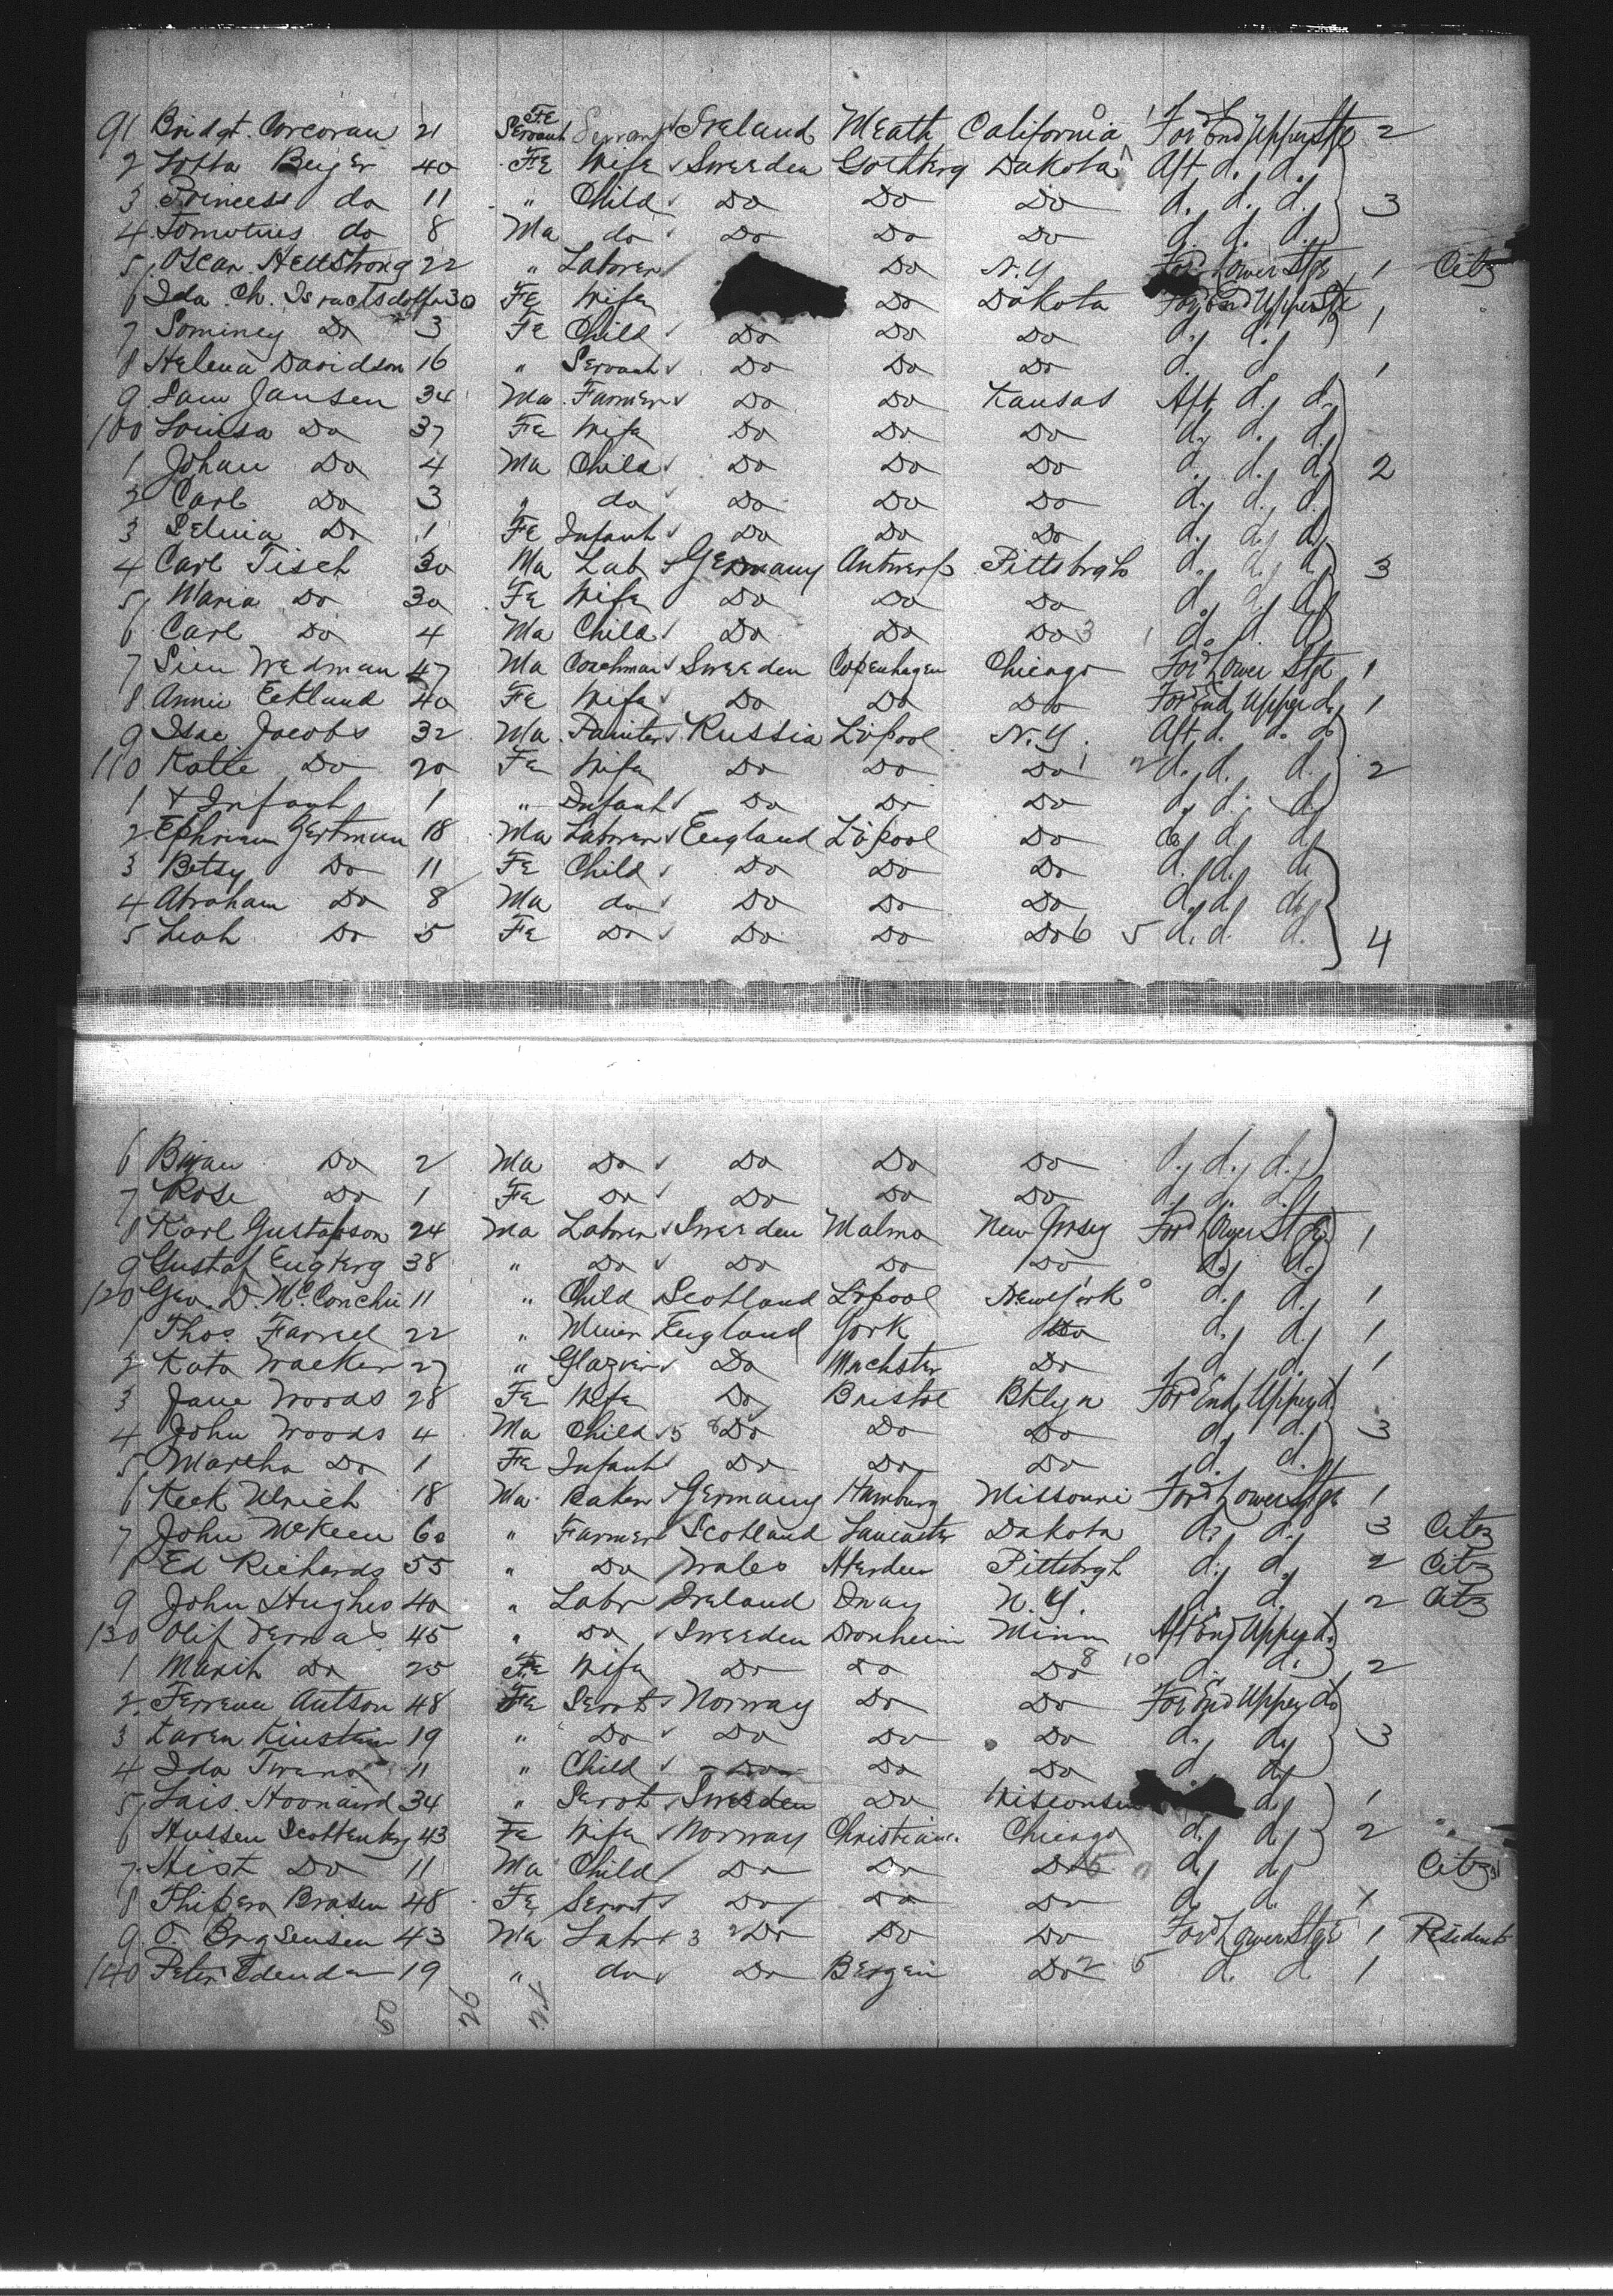 91 Bridgt. Corcoran 21 Fe Servant Servant Ireland Meath California Ford End Upper Stge 2
2 Lotta Beijer 40 Fe Wife Sweden Gothberg Dakota Aft d. d.
3 Princess do 11 " Child Do Do Do d. d. d. 3
4 do 8 Ma do Do Do Do d. d. d.
5 Oscar Hellstrong 22 " Laborer Do N.Y. Ford Lower Stge 1 Citz
6 Ida Ch. Israelsdotter 30 Fe Wife Do Dakota Ford End Upper Stge
7 Sominey Do 3 Fe Child Do Do Do d. d. 1
8 Helena Davidson 16 " Servant Do Do Do d. d. 1
9 Sam Jansen 34 Ma Farmer Do Do Kansas Aft d. d.
100 Louisa Do 37 Fe Wife Do Do Do d. d. d.
1 Johan Do 4 Ma Child Do Do Do d. d. d. 2
2 Carl Do 3 " do Do Do Do d. d. d.
3 Selma Do 1 Fe Infant Do Do Do d. d. d.
4 Carl Tisch 30 Ma Lab Germany Antwerp Pittsbrgh d. d. d. 3
5 Maria Do 30 Fe Wife Do Do Do d. d. d.
6 Carl Do 4 Ma Child Do Do Do 3 1 d. d. d.
7 Sien Wedman 47 Ma Coachman Sweden Copenhagen Chicago Ford Lower Stge 1
8 Annie Eckland 40 Fe Wife Do Do Do Ford End Upper d. 1
9 Isac Jacobs 32 Ma Painter Russia L'pool N.Y. Aft d. d. d.
110 Katie Do 20 Fe Wife Do Do Do 1 2 d. d. d. 2
1 + Infant 1 " Infant Do Do Do d. d. d.
2 Ephriam Gertman 18 Ma Laborer England L'pool Do d. d. d.
3 Betsy Do 11 Fe Child Do Do Do d. d. d.
4 Abraham Do 8 Ma do Do Do Do d. d. d.
5 Leah Do 5 Fe Do Do Do Do 6 5 d. d. d. 4
6 Do 2 Ma Do Do Do Do d. d. d.
7 Rose Do 1 Fe Do Do Do Do d. d. d.
8 Karl Gustafson 24 Ma Laborer Sweden Malmo New Jrsey Ford Lower Stge 1
9 Gustaf Engberg 38 " Do Do Do Do d. d.
120 Geo. D. McConchie 11 " Child Scotland L'pool New York 0 d. d. 1
1 Thos. Farrel 22 " Miner England York Do d. d. 1
2 Kato Walker 27 " Glazier Do Mnchster Do d. d. 1
3 Jane Woods 28 Fe Wife Do Bristol Bklyn Ford End Upper d.
4 John Woods 4 Ma Child 5 8 Do Do Do d. d. 3
5 Martha Do 1 Fe Infant Do Do Do d. d.
6 Keek Ulrich 18 Ma Baker Germany Hamburg Missouri Ford Lower Stge 1
7 John McKeen 60 " Farmer Scotland Lancaster Dakota d. d. 3 Citz
8 Ed Richards 55 " Do Wales Aberdeen Pittsbrgh d. d. 2 Citz
9 John Hughes 40 " Labr Ireland N.Y. d. d. 2 Citz
130 Olif 45 " Do Sweden Dronheim Minn Aft End Upper d.
1 Marit Do 25 Fe Wife Do Do Do 8 10 d. d. 2
2 Antson 48 Fe Servt Norway Do Do Ford End Upper do
3 Karen Kinstein 19 " Do Do Do Do d. d. 3
4 Ida 11 " Child Do Do Do d. d.
5 Lais 34 " Servt Sweden Do Wisconsin d. 1
6 Hussen Scottenberg 43 Fe Wife Norway Christiana Chicago d. d. 2
7 Hist Do 11 Ma Child Do Do Do 5 0 d. d. Citz
8 Brasen 48 Fe Servt Do Do Do d. d. 1
9 O. Brgsensen 43 Ma Labr 3 2 Do Do Do Ford Lower Stge 1 Resident
140 Peter 19 " do Do Bergen Do 2 5 d. d. 1